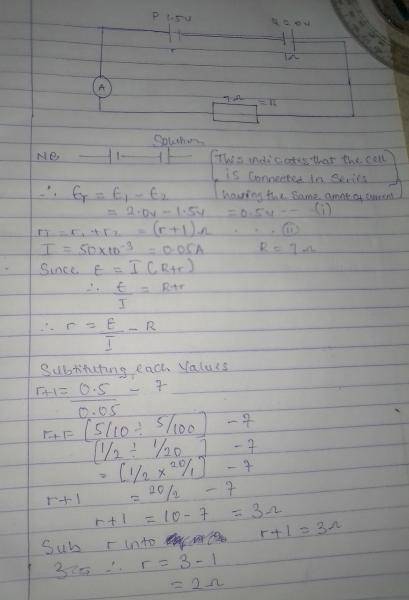 P 1.5V
2.0V
r
1Ω
A
7Ω
=R
Solution
NB
[This indicates that the cell
is connected in Series
having the same amt of current]
∴ E_T = E₁ - E₂
= 2.0V - 1.5V = 0.5V --- (i)
r_T = r₁ + r₂ = (r+1)Ω ... (ii)
I = 50×10⁻³ = 0.05A R = 7Ω
Since E = I(R+r)
∴ E/I = R+r
∴ r = E/I - R
Substituting each values
r+1 = 0.5/0.05 - 7
r+1 = [5/10 ÷ 5/100] - 7
[1/2 ÷ 1/20] - 7
= [1/2 × 20/1] - 7
r+1 = 20/2 - 7
r+1 = 10-7 = 3Ω
Sub r into r+1 = 3Ω
∴ r = 3-1
= 2Ω